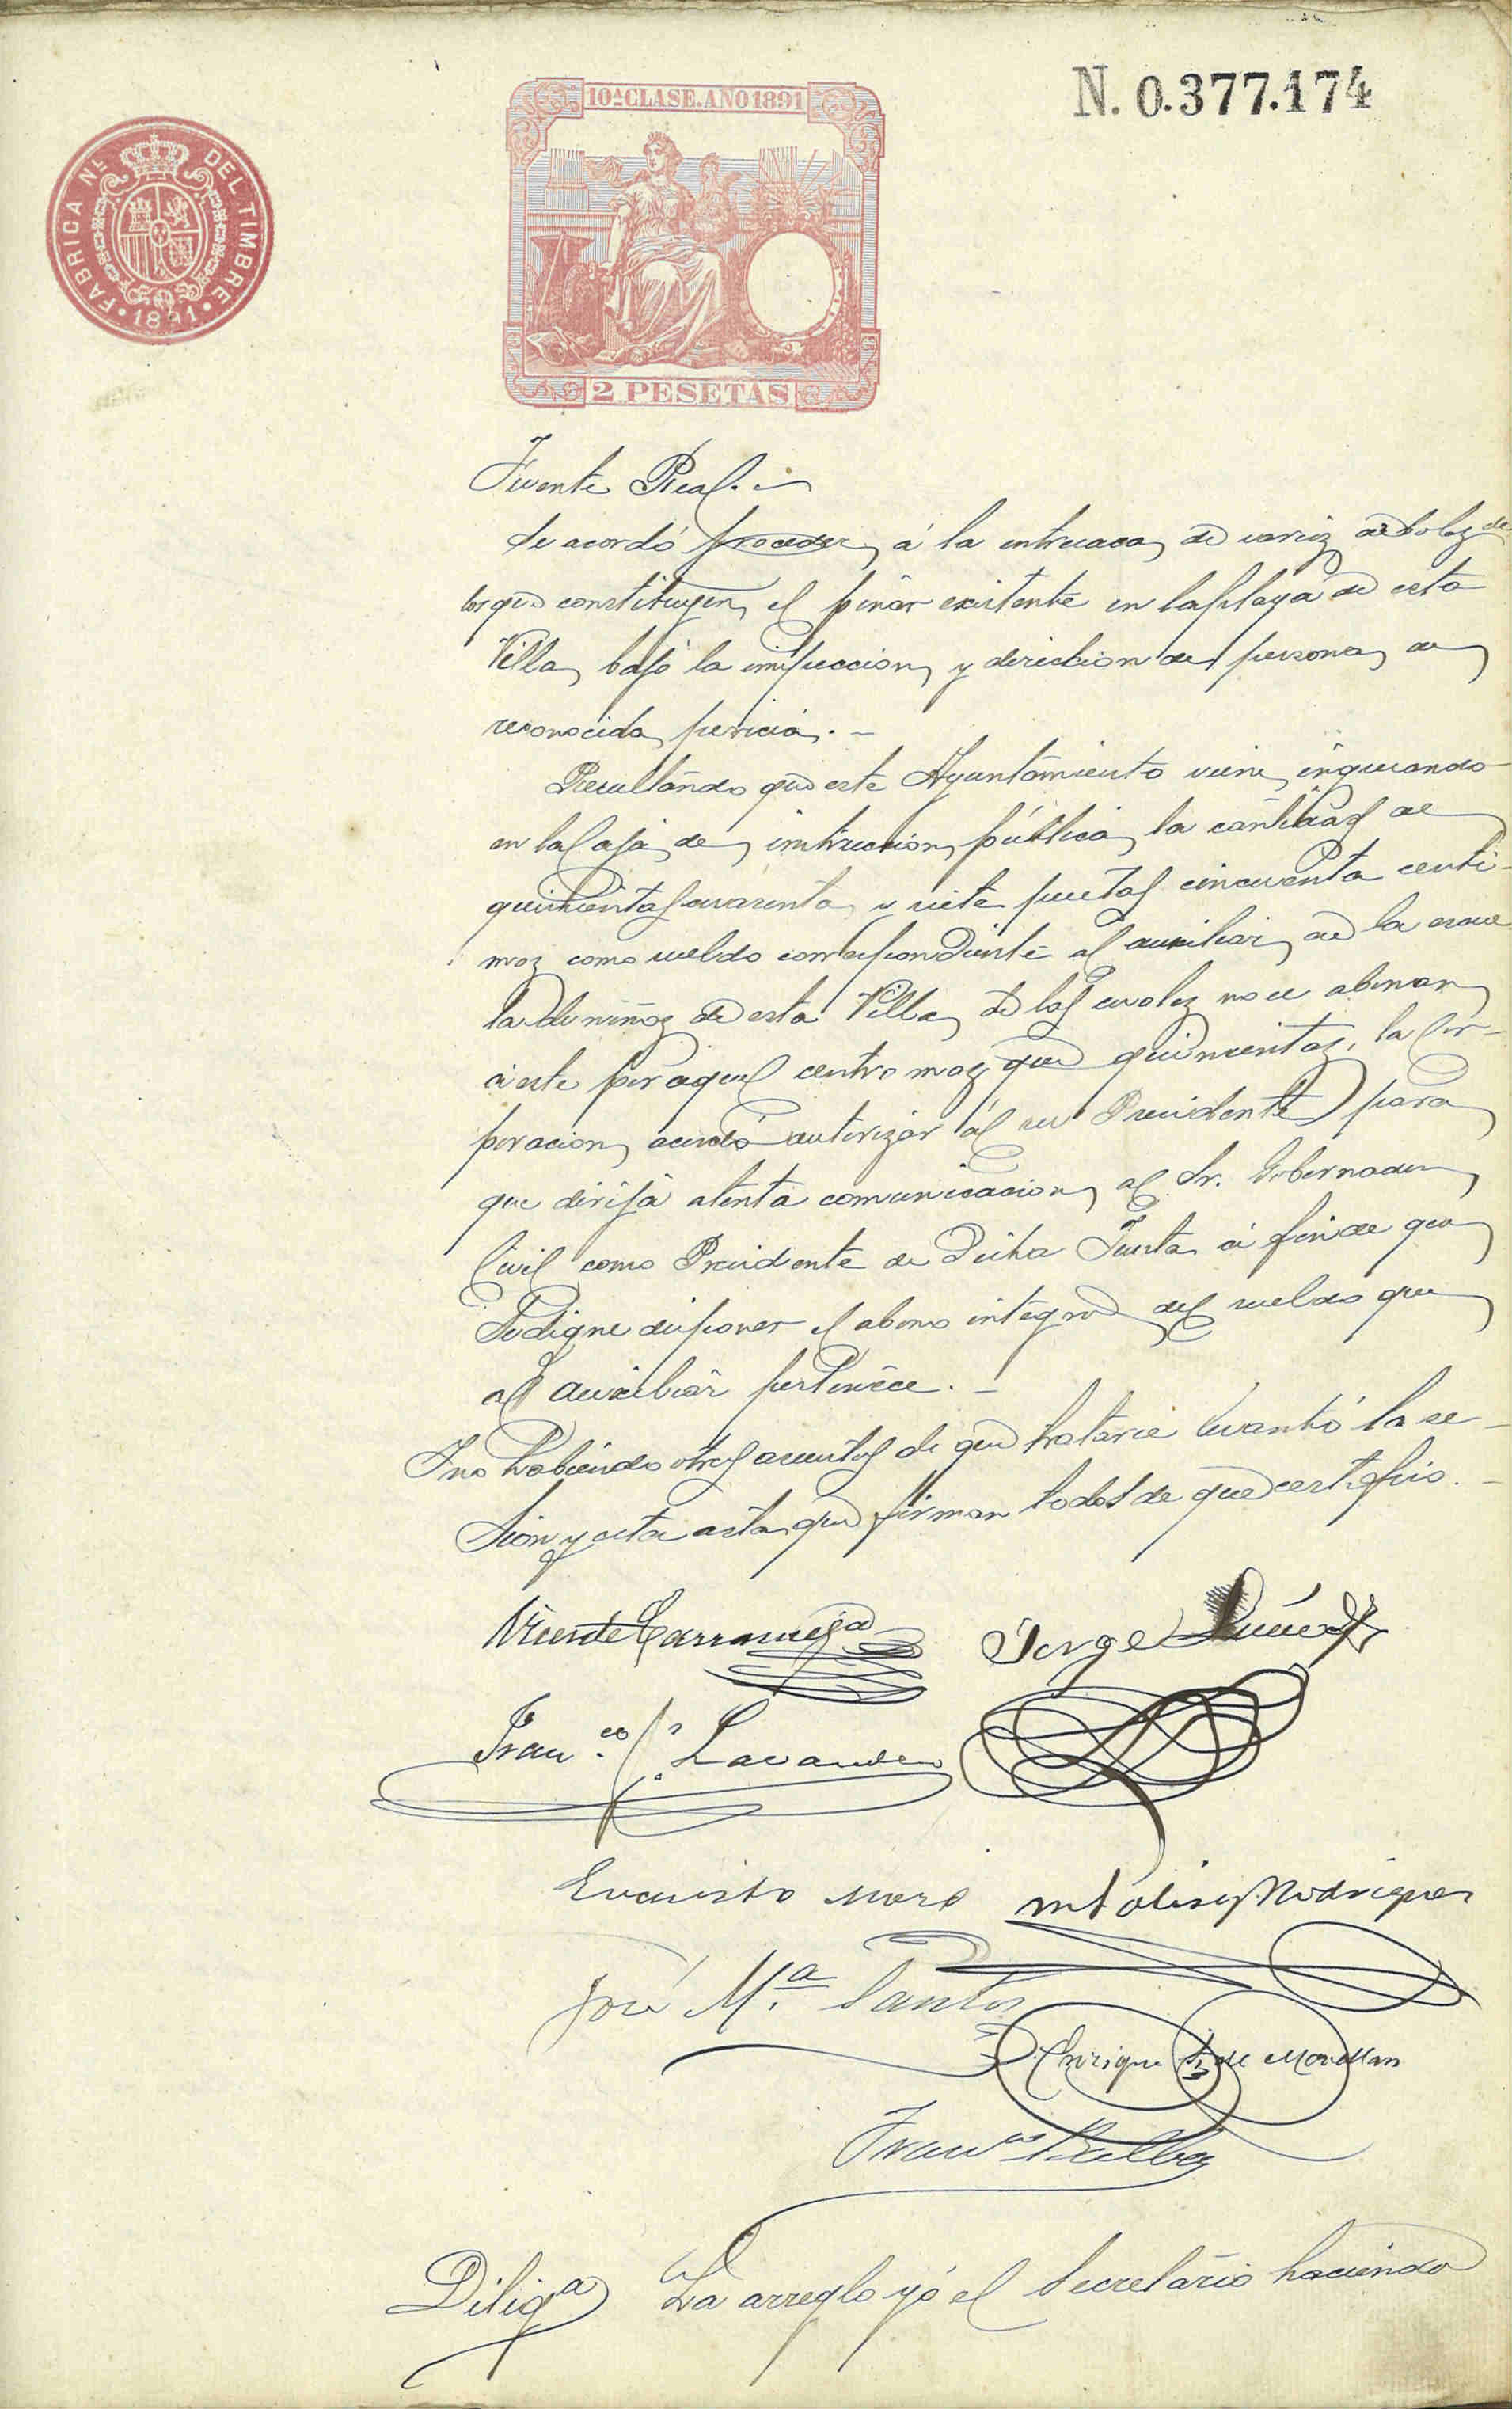 N. 0.377.174
10ª CLASE. AÑO 1891
FABRICA NL DEL TIMBRE
1891
2 PESETAS
Fuente Real.
Se acordó proceder á la entresaca de varios arboles de
los que constituyen el pinar existente en la playa de esta
Villa, bajo la inspeccion y direccion de persona de
reconocida pericia.
Resultando que este Ayuntamiento viene ingresando
en la Caja de instruccion pública la cantidad de
quinientas cuarenta y siete pesetas cincuenta centi-
mos como sueldo correspondiente al auxiliar de la escue
la de niños de esta Villa, de las cuales no se abonan
á este por aquel centro mas que quinientas, la Cor-
poracion acordó autorizar al su Presidente para
que dirija atenta comunicacion al Sr. Gobernador
Civil como Presidente de dicha Junta á fin de que
se digne disponer el abono integro del sueldo que
al auxiliar pertenece.
Y no habiendo otros asuntos de que tratar se levantó la se-
sion y esta acta que firman todos de que certifico.
Vicente Carranceja
Jorge
Fran.co Lavandero
Evaristo More
Rodriguez
José M.ª Santos
Enrique de Movellan
Fran.co
Dilig.ª La arreglo yó el Secretário haciendo